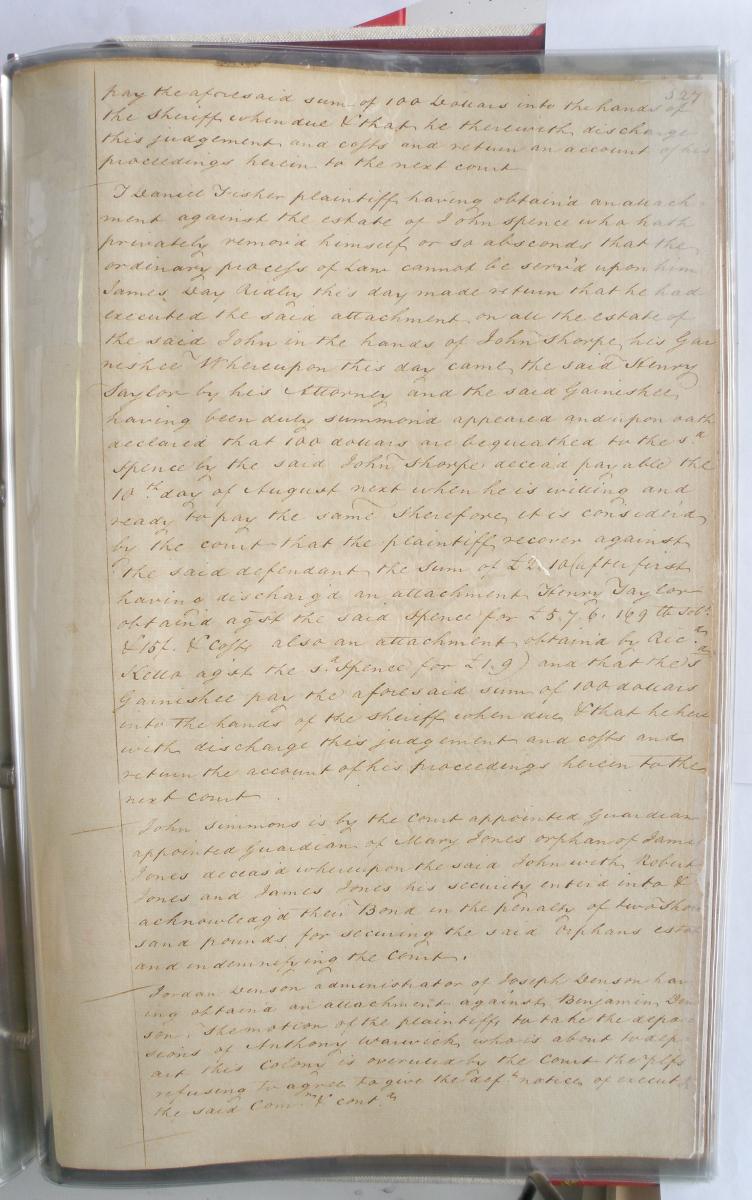 527
pay the aforesaid sum of 100 Dollars into the hands of
the Sheriff when due & that he therewith discharge
this judgement and costs and return an account of his
proceedings herein to the next court
Daniel Fisher plaintiff having obtain'd an attach
ment against the estate of John Spence who hath
privately remov'd himself or so absconds that the
ordinary process of Law cannot be serv'd upon him
James Day Ridley this day made return that he had
executed the said attachment on all the estate of
the said John in the hands of John Thorpe his Gar
nishee Whereupon this day came the said Henry
Taylor by his Attorney and the said Garnishee
having been duly summon'd appeared and upon oath
declared that 100 dollars are bequeathed to the sd
Spence by the said John Thorpe deceas'd payable the
10th day of August next when he is willing and
ready to pay the same Therefore it is consider'd
by the court that the plaintiff recover against
the said defendant the sum of £2.10 (after first
having discharg'd an attachment Henry Taylor
obtain'd agst the said Spence for £5.7.6. 169 lb tobo
& 15/. & Costs also an attachment obtain'd by Ric
Kello agst the sd Spence for £1.9) and that the sd
Garnishee pay the aforesaid sum of 100 dollars
into the hands of the Sheriff when due & that he here
with discharge this judgement and costs and
return the account of his proceedings herein to the
next court
John Simmons is by the Court appointed Guardian
appointed Guardian of Mary Jones orphan of James
Jones deceas'd whereupon the said John with Robert
Jones and James Jones his security enter'd into &
acknowledg'd their Bond in the penalty of two thou
sand pounds for securing the said Orphans estate
and indemnifying the Court.
Jordan Denson administrator of Joseph Denson hav
ing obtain'd an attachment against Benjamin Den
son. The motion of the plaintiff to take the depo
sions of Anthony Warwick who is about to dep
art this Colony is overuled by the Court the plfs
refusing to agree to give the deft notice of execut
the said Comn & contd